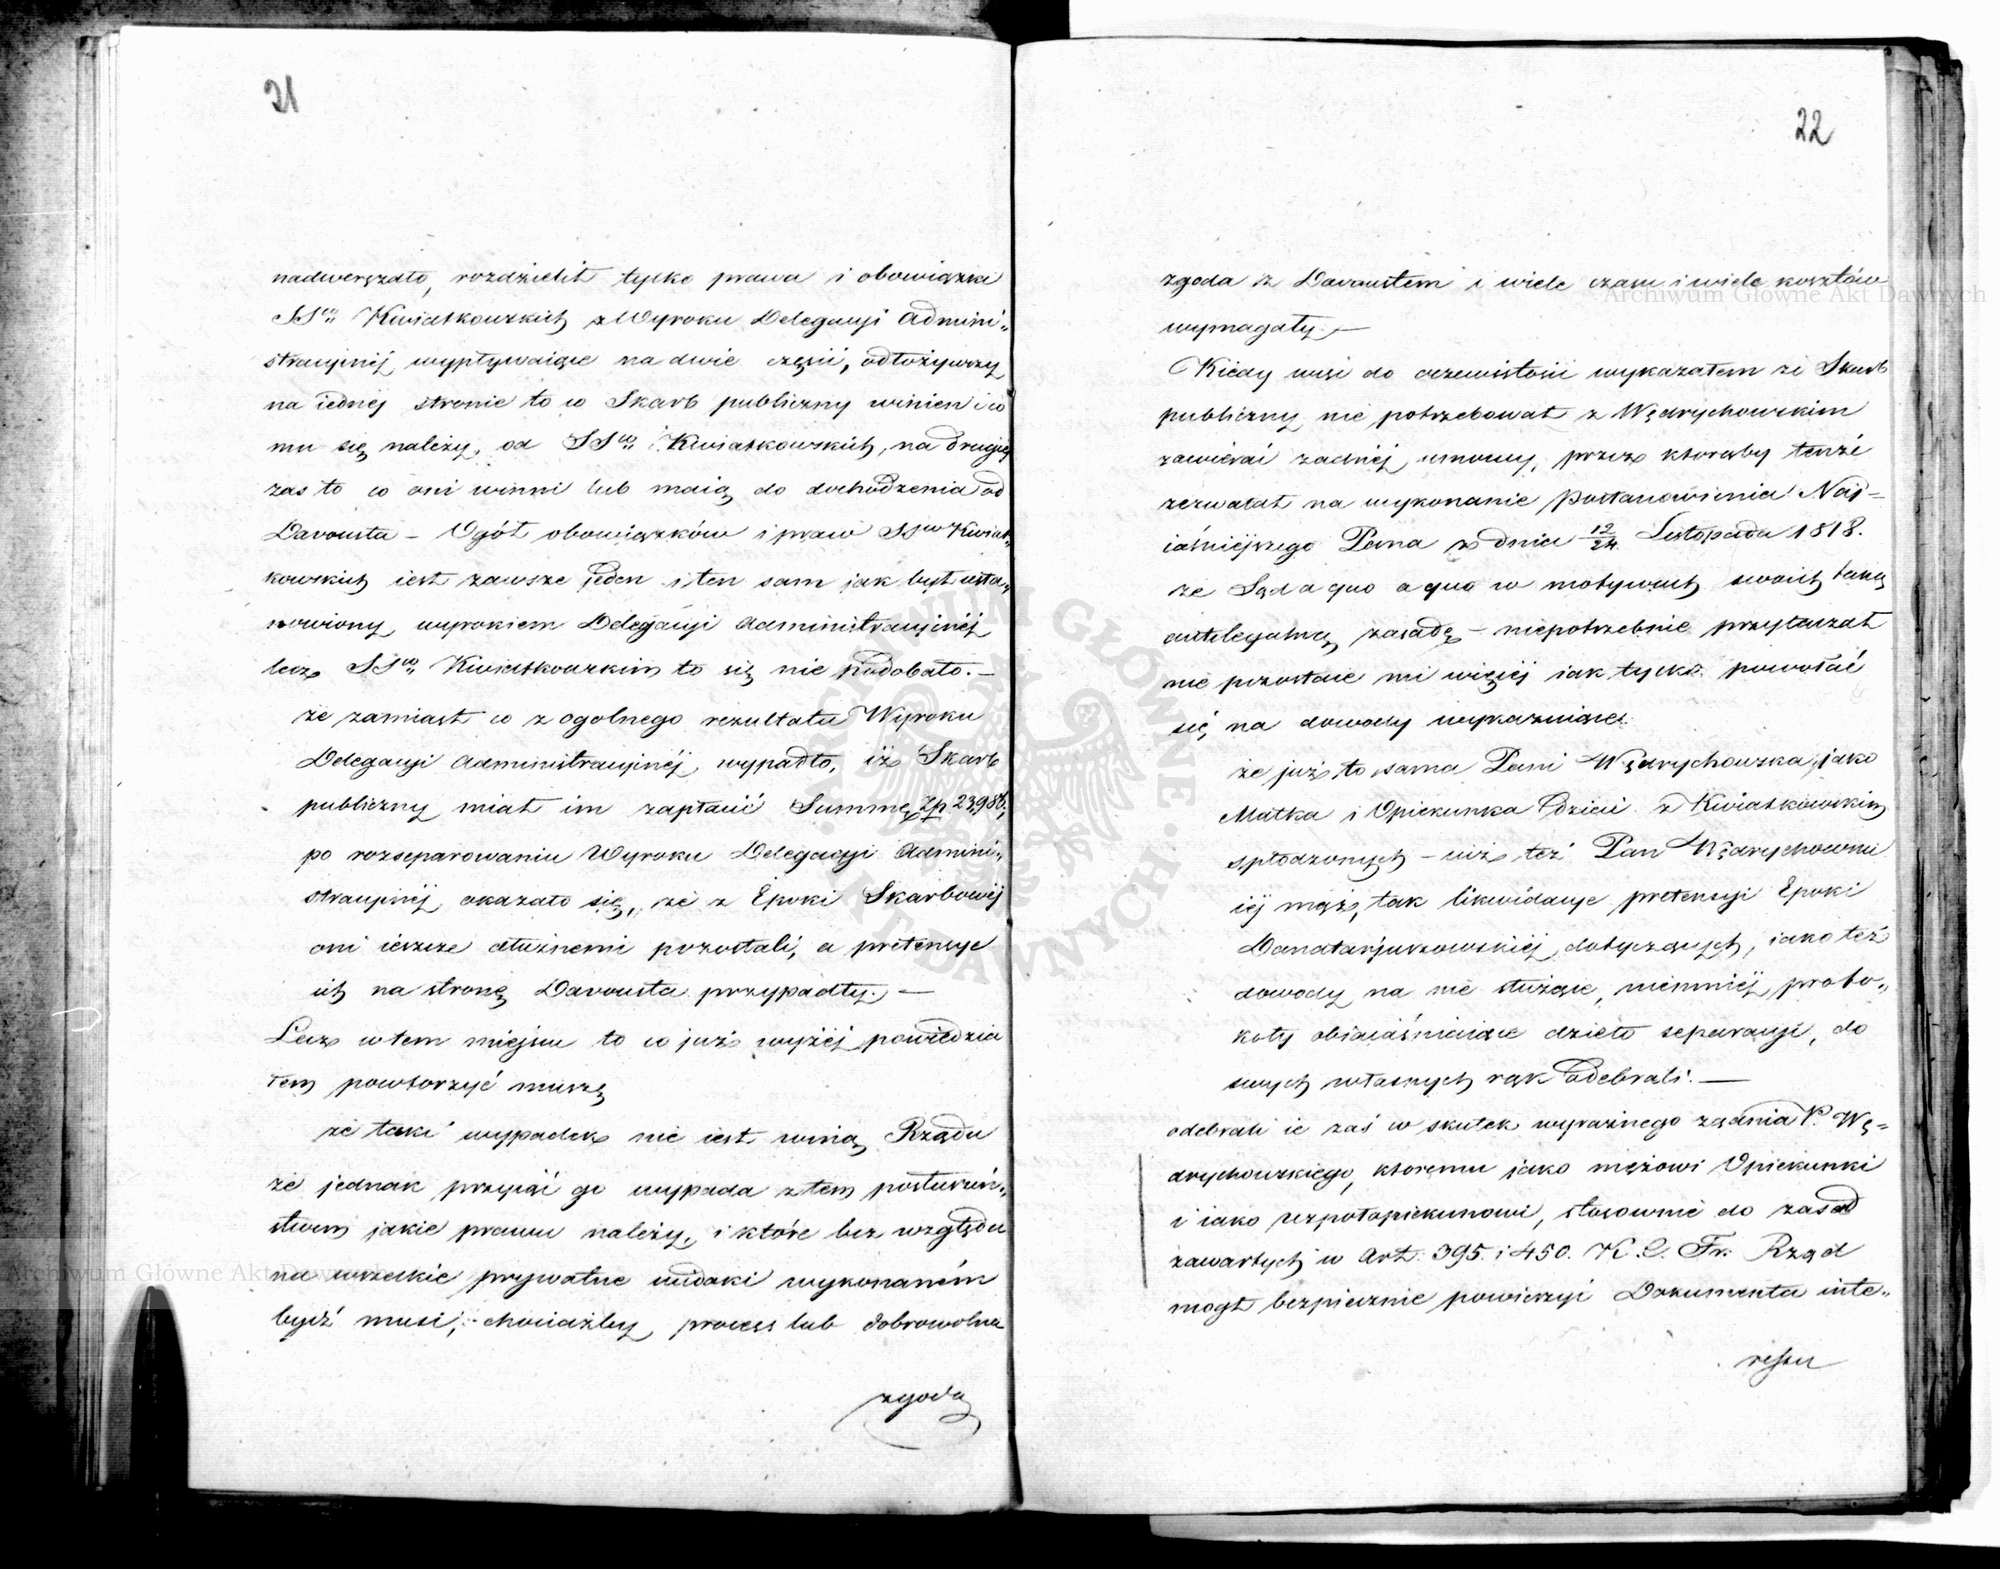 21
nadweręzało, rozdzielił tylko prawa i obowiązki
SSrów Kwiatkowskich z Wyroku Delegacyi Admini„
stracyjnéj wypływaiące na dwie części, odłożywszy
na iednéj stronie to co Skarb publiczny winien i co
mu się należy, od SSrów Kwiatkowskich, na drugiéj
zas to co oni winni lub maią do dochodzenia od
Davousta – Ogół obowiązków i praw SSrów Kwiat„
kowskich iest zawsze jeden i ten sam jak był usta„
nowiony wyrokiem Delegacyi Administracyjnéj
lecz SSrom Kwiatkowskim to się nie podobało. –
że zamiast co z ogolnego rezultatu Wyroku
Delegacyi Administracyjnéj wypadło, iż Skarb
publiczny miał im zapłacić Summę Zp 23,986,
po rozseparowaniu Wyroku Delegacyi Admini„
stracyjnéj okazało się, że z Epoki Skarbowéj
oni ieszcze dłużnemi pozostali, a pretensye
ich na stronę Davousta przypadły. –
Lecz w tem miejscu to co już wyżéj powiedzia
łem powtorzyć muszę
że taki wypadek nie iest winą Rządu
że jednak przyiąć go wypada z tem posłuszeń„
stwem jakie prawu należy, i które bez względu
na wszelkie prywatne widoki wykonaném
bydź musi, chociażby process lub dobrowolna
zgoda
22
zgoda z Davoustem i wiele czasu i wiele kosztów
wymagały. –
Kiedy więc do oczewistości wykazałem że Skarb
publiczny nie potrzebował z Wędrychowskim
zawierać żadnéj umowy, przez ktorąby tenże
zezwalał na wykonanie Postanowienia Naj=
iaśniejszego Pana z dnia 12/24 Listopada 1818.
że Sąd a quo a quo w motywach swoich taką
antilegalną zasadę – niepotrzebnie przytaczał
nie pozostaie mi więcéj iak tylko powołać
się, na dowody wykazuiące
że już to sama Pani Wędrychowska, jako
Matka i Opiekunka dzieci z Kwiatkowskim
spłodzonych – iuż też Pan Wędrychowski
iéj mąż, tak likwidacye pretensyi Epoki
Donataryuszowskiéj dotyczących, iako też
dowody na nie służące, niemniéj proto„
koły obiaśniaiące dzieło separacyi, do
swych własnych rąk odebrali. –
odebrali ie zaś w skutek wyraźnego żądania P. Wę=
drychowskiego, ktoremu jako mężowi Opiekunki
i iako wspołopiekunowi, stosownie do zasad
zawartych w Art. 395. i 450. K. C. Fr. Rząd
mogł bezpiecznie powierzyć Dokumenta inte„
ressu
Archiwum Główne Akt Dawnych
Archiwum Główne Akt Dawnych
ARCHIWUM GŁÓWNE AKT DAWNYCH